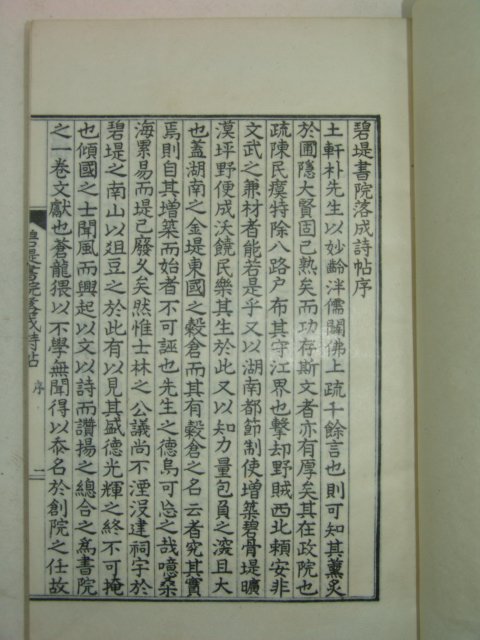 碧堤書院落成詩帖序
土軒朴先生以妙齡泮儒闢佛上疏千餘言也則可知其薰炙
於圃隱大賢固已熟矣而功存斯文者亦有厚矣其在政院也
疏陳民瘼特除八路戶布其守江界也擊却野賊西北賴安非
文武之兼材者能若是乎又以湖南都節制使增築碧骨堤曠
漠坪野便成沃饒民樂其生於此又以知力量包負之深且大
也盖湖南之金堤東國之穀倉而其有穀倉之名云者究其實
焉則自其增築而始者不可誣也先生之德烏可忘之哉噫桑
海累易而堤已廢久矣然惟士林之公議尚不湮沒建祠宇於
碧堤之南山以俎豆之於此有以見其盛德光輝之終不可掩
也傾國之士聞風而興起以文以詩而讚揚之總合之爲書院
之一卷文獻也蒼龍猥以不學無聞得以忝名於創院之仕故
碧堤書院落成詩帖 序 二